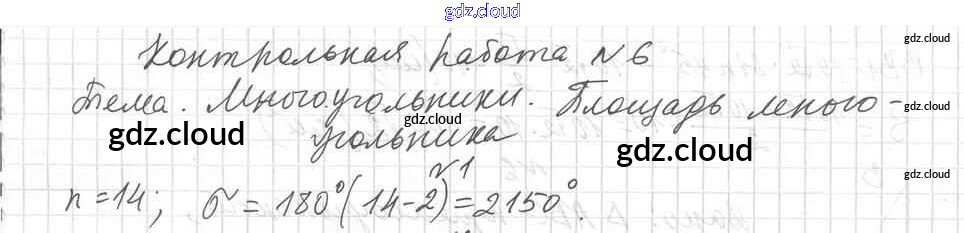 gdz.cloud
Контрольная работа N 6
gdz.cloud
Тема. Многоугольники. Площадь много-
gdz.cloud
угольника
gdz.cloud gdz.cloud gdz.cloud
N 1
gdz.cloud
n = 14; σ = 180°(14-2) = 2150°.
gdz.cloud